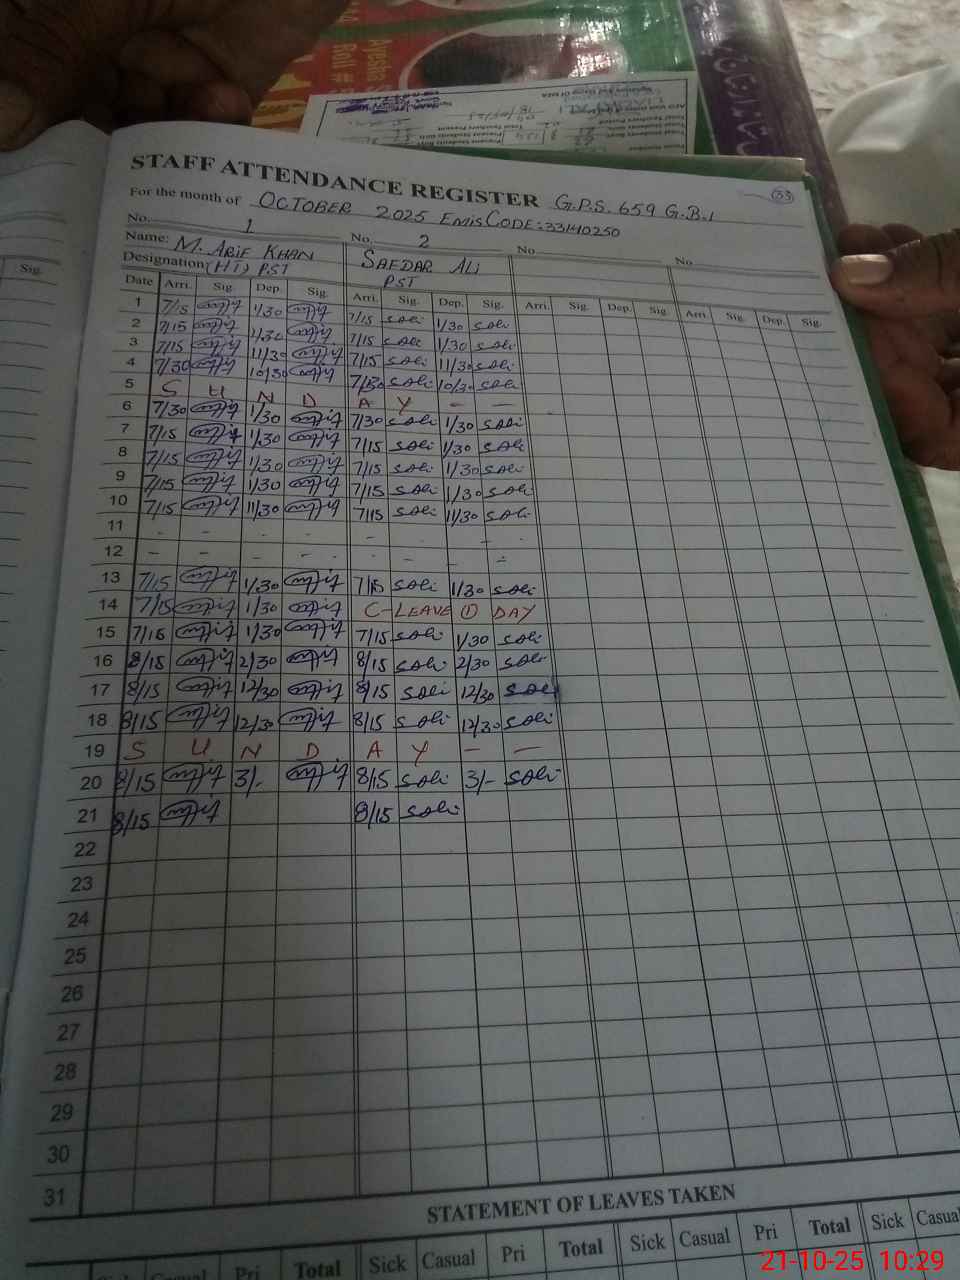 STAFF ATTENDANCE REGISTER G.P.S. 659 G.B.I
33
For the month of OCTOBER 2025 EMIS CODE:33140250
No. 1 No. 2 No. No.
Name: M. ARIF KHAN SAFDAR ALI
Designation (HT) PST PST
Sig.
Date Arri. Sig. Dep. Sig. Arri. Sig. Dep. Sig. Arri. Sig. Dep. Sig. Arri. Sig. Dep. Sig.
1 7/15 1/30 7/15 sali 1/30 sali
2 7/15 1/30 7/15 sali 1/30 sali
3 7/15 11/30 7/15 sali 11/30 sali
4 7/30 10/30 7/30 sali 10/30 sali
5 S U N D A Y - -
6 7/30 1/30 7/30 sali 1/30 sali
7 7/15 1/30 7/15 sali 1/30 sali
8 7/15 1/30 7/15 sali 1/30 sali
9 7/15 1/30 7/15 sali 1/30 sali
10 7/15 11/30 7/15 sali 11/30 sali
11 - - - - - - - -
12 - - - - - - - -
13 7/15 1/30 7/15 sali 1/30 sali
14 7/15 1/30 C-LEAVE ① DAY
15 7/15 1/30 7/15 sali 1/30 sali
16 8/15 2/30 8/15 sali 2/30 sali
17 8/15 12/30 8/15 sali 12/30 sali
18 8/15 12/30 8/15 sali 12/30 sali
19 S U N D A Y - -
20 8/15 3/- 8/15 sali 3/- sali
21 8/15 8/15 sali
22
23
24
25
26
27
28
29
30
31
STATEMENT OF LEAVES TAKEN
Sick Casual Pri Total Sick Casual Pri Total Sick Casual Pri Total Sick Casual
21-10-25 10:29